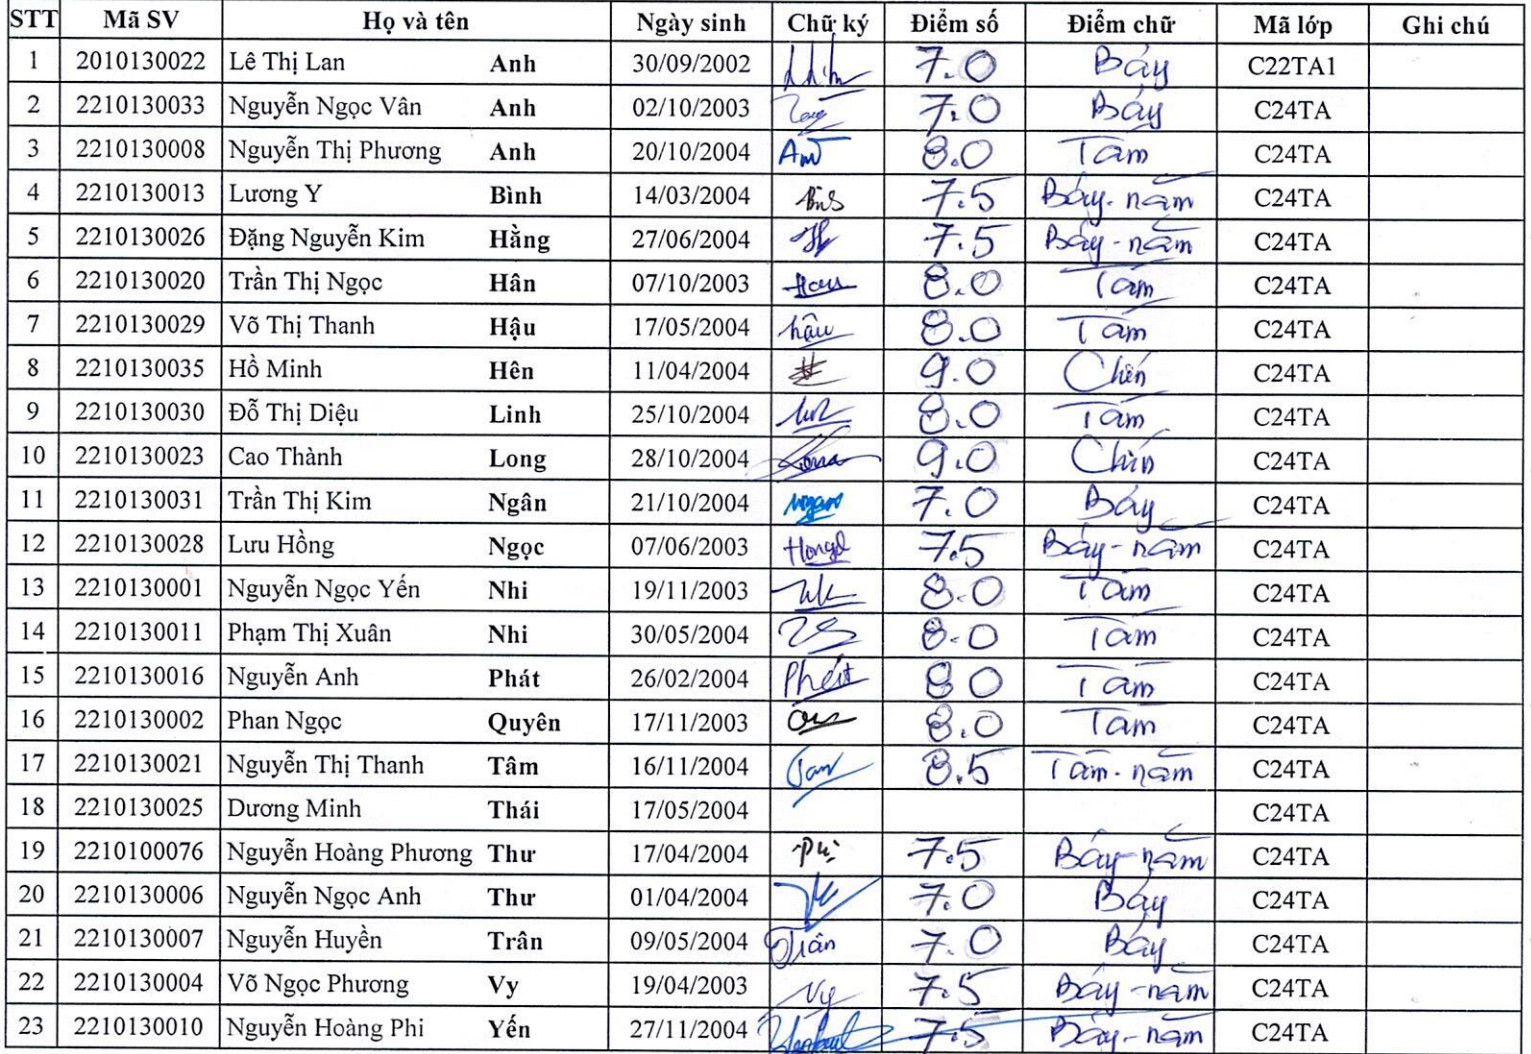 STT Mã SV Họ và tên Ngày sinh Chữ ký Điểm số Điểm chữ Mã lớp Ghi chú
1 2010130022 Lê Thị Lan Anh 30/09/2002 7.0 Bảy C22TA1
2 2210130033 Nguyễn Ngọc Vân Anh 02/10/2003 7.0 Bảy C24TA
3 2210130008 Nguyễn Thị Phương Anh 20/10/2004 8.0 Tám C24TA
4 2210130013 Lương Y Bình 14/03/2004 7.5 Bảy-năm C24TA
5 2210130026 Đặng Nguyễn Kim Hằng 27/06/2004 7.5 Bảy-năm C24TA
6 2210130020 Trần Thị Ngọc Hân 07/10/2003 8.0 Tám C24TA
7 2210130029 Võ Thị Thanh Hậu 17/05/2004 hậu 8.0 Tám C24TA
8 2210130035 Hồ Minh Hên 11/04/2004 9.0 Chín C24TA
9 2210130030 Đỗ Thị Diệu Linh 25/10/2004 8.0 Tám C24TA
10 2210130023 Cao Thành Long 28/10/2004 9.0 Chín C24TA
11 2210130031 Trần Thị Kim Ngân 21/10/2004 7.0 Bảy C24TA
12 2210130028 Lưu Hồng Ngọc 07/06/2003 7.5 Bảy-năm C24TA
13 2210130001 Nguyễn Ngọc Yến Nhi 19/11/2003 8.0 Tám C24TA
14 2210130011 Phạm Thị Xuân Nhi 30/05/2004 8.0 Tám C24TA
15 2210130016 Nguyễn Anh Phát 26/02/2004 Phát 8.0 Tám C24TA
16 2210130002 Phan Ngọc Quyên 17/11/2003 8.0 Tám C24TA
17 2210130021 Nguyễn Thị Thanh Tâm 16/11/2004 8.5 Tám-năm C24TA
18 2210130025 Dương Minh Thái 17/05/2004 C24TA
19 2210100076 Nguyễn Hoàng Phương Thư 17/04/2004 7.5 Bảy-năm C24TA
20 2210130006 Nguyễn Ngọc Anh Thư 01/04/2004 7.0 Bảy C24TA
21 2210130007 Nguyễn Huyền Trân 09/05/2004 Trân 7.0 Bảy C24TA
22 2210130004 Võ Ngọc Phương Vy 19/04/2003 Vy 7.5 Bảy-năm C24TA
23 2210130010 Nguyễn Hoàng Phi Yến 27/11/2004 7.5 Bảy-năm C24TA